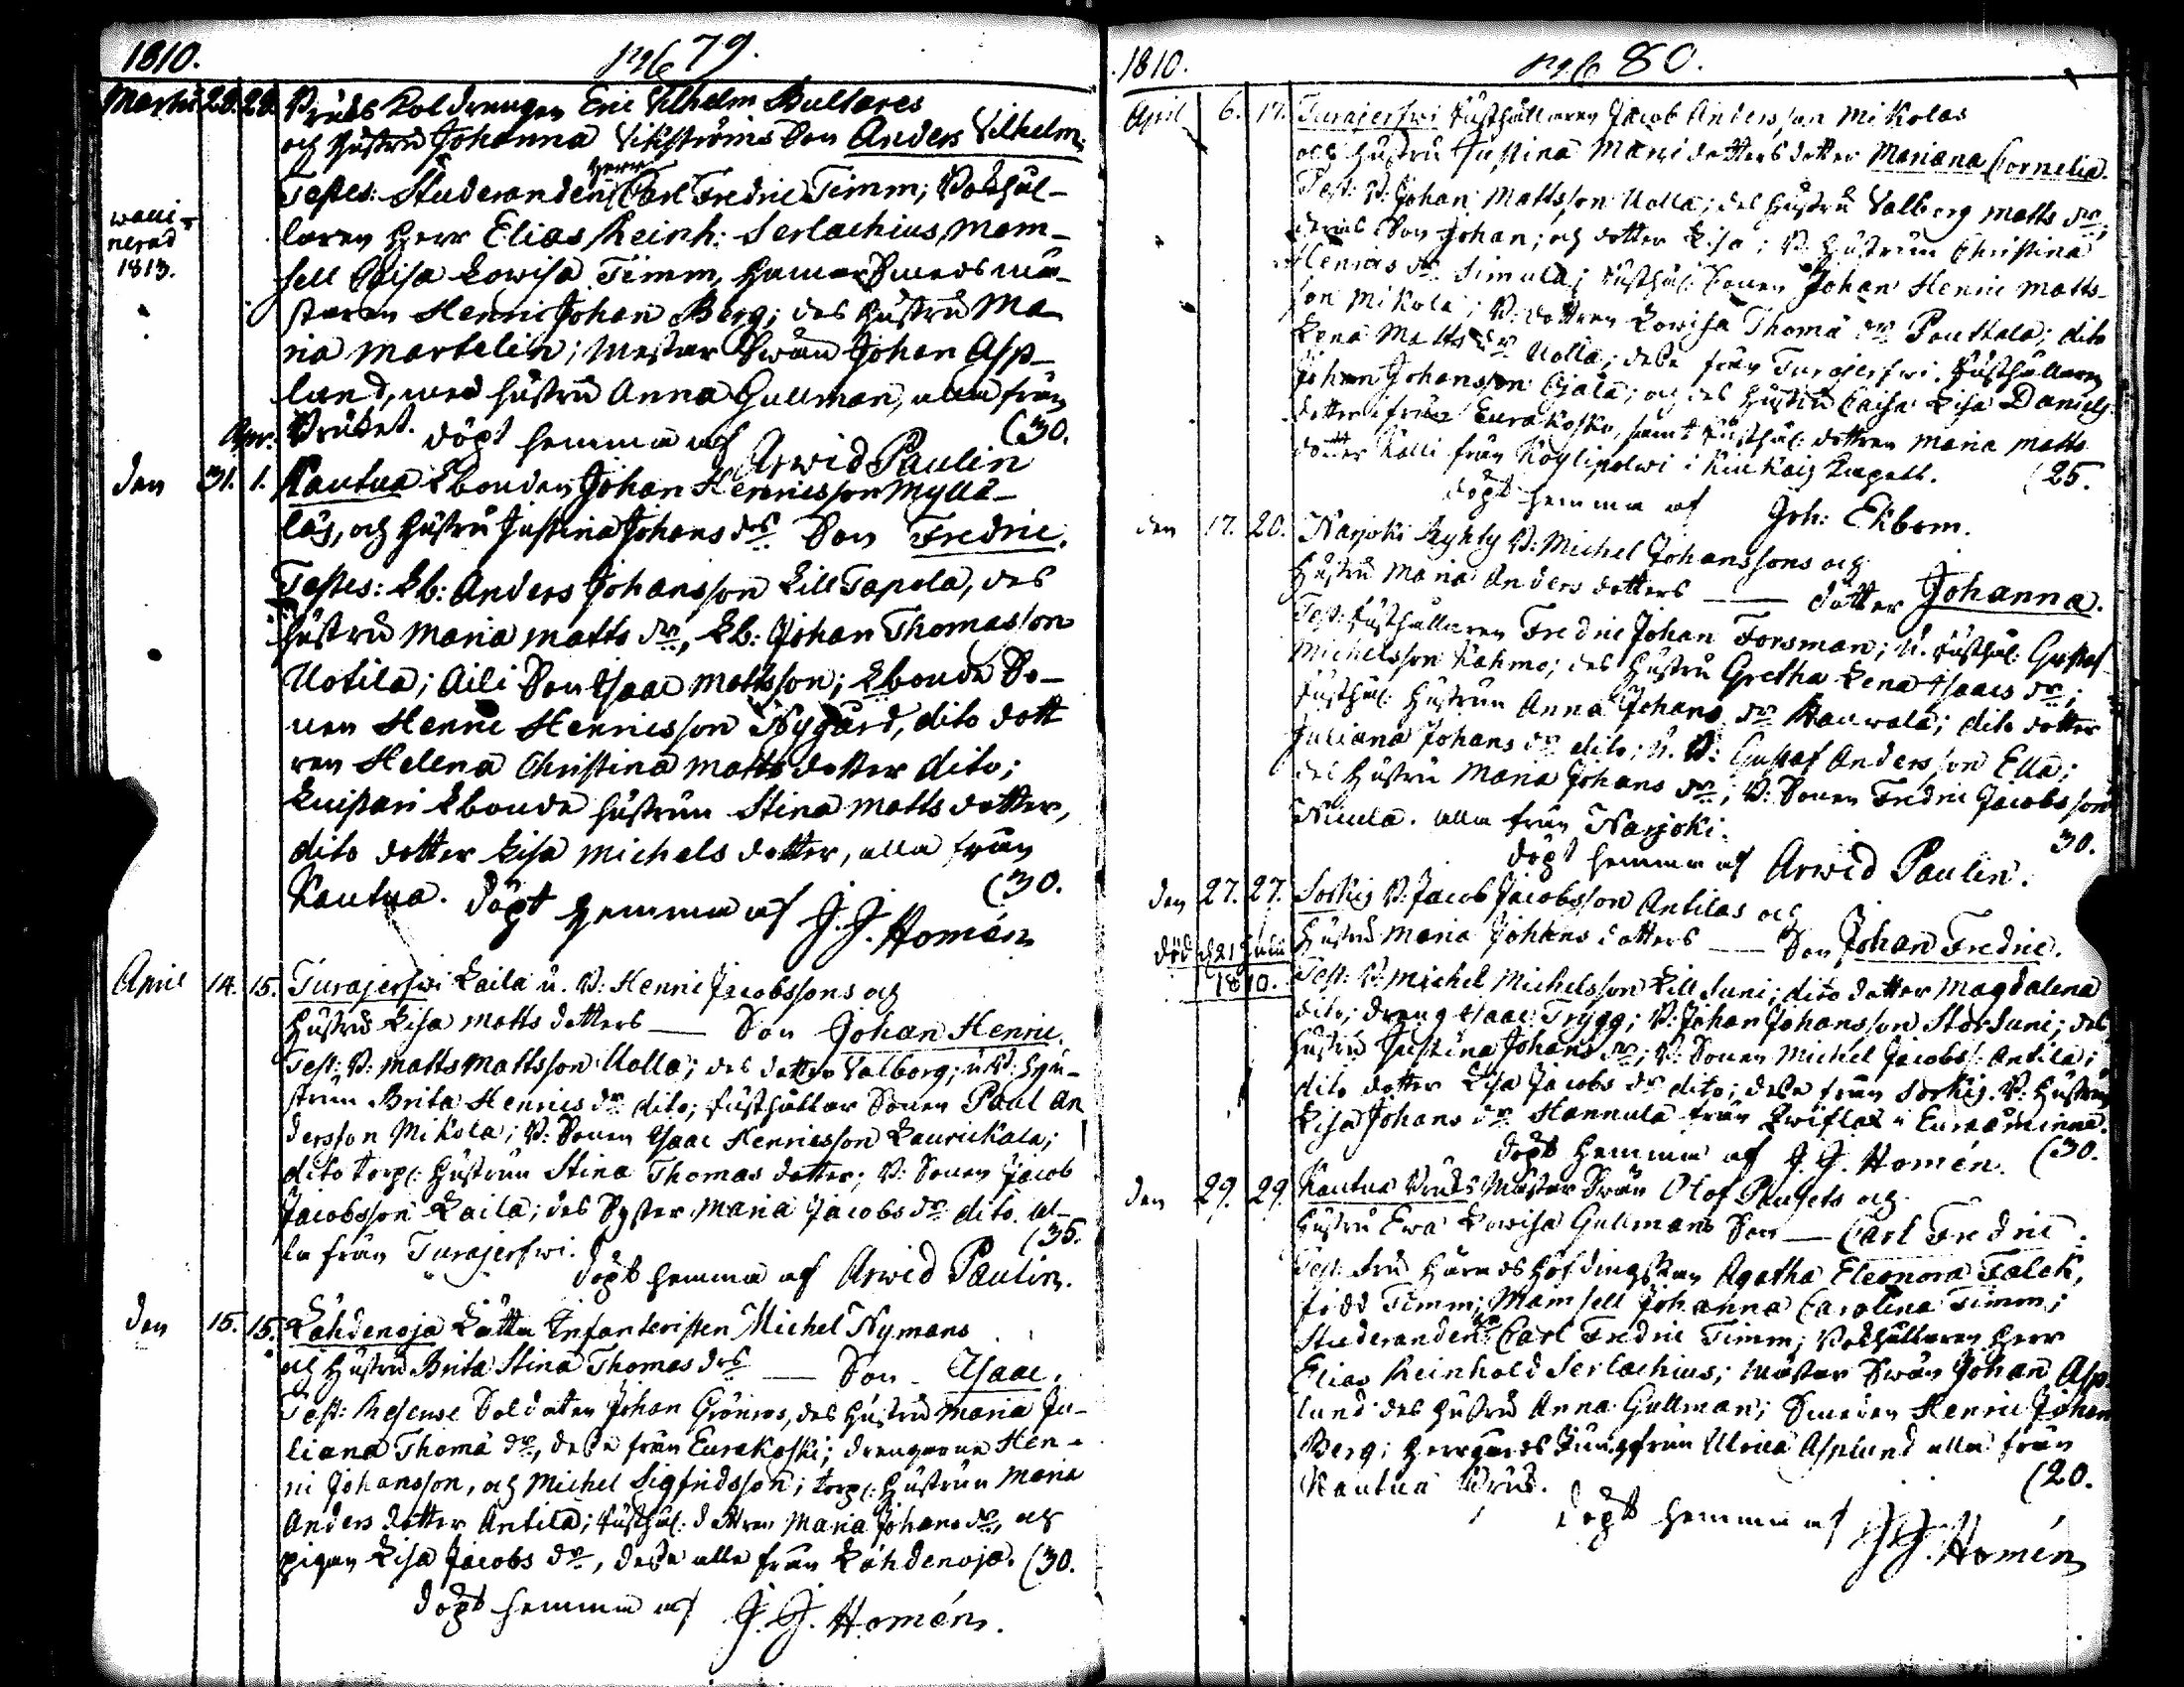 1810.
pag 79.
Martii 28. 28. Bruks Koldrengen Eric Vilhelm Bullares
och hustru Johanna Vikströms Son Anders Vilhelm.
Testes: Studeranden Herr Carl Fredric Timm; Bokhål-
laren Herr Elias Reinh: Serlachius, Mam-
vacci-
nerad
1813.
sell Caisa Lowisa Timm, Hamarsmeds mä-
staren Henric Johan Berg; des hustru Ma
ria Martelin; Mästar Swän Johan Asp-
lund, med hustru Anna Gullman, alla från
Bruket. döpt hemma af Arwid Paulin (30.
Apr:
den 31. 1. Kautua Lbonden Johan Henricsson Myllä-
läs, och hustru Justina Johans drs Son Fredric.
Testes: Lb: Anders Johansson Lill Tapola, des
hustru Maria Matts dr, Lb: Johan Thomasson
Uotila; Aili Son Isaac Mattsson; Lbonde So-
nen Henric Henricsson Nygård, dito dott
ren Helena Christina Matts dotter dito;
Knipari Lbonde hustrun Stina Matts dotter,
dito dotter Lisa Michels dotter, alla från
Kautua. döpt hemma af J. J. Homén (30.
April 14. 15. Turajerfwi Laila u. B: Henric Jacobssons och
hustru Lisa Matts dotters — Son Johan Henric.
Test: B: Matts Mattsson Uolla; des dotter Valborg; u B: hu-
strun Brita Henrics dr dito; rusthållar Sonen Paul An
dersson Mikola; B: Sonen Isaac Henricsson Laurickala;
dito torp: hustrun Stina Thomas dotter; B: Sonen Jacob
Jacobsson Laila; des Syster Maria Jacobs dr dito. al-
la från Turajerfwi. (35.
döpt hemma af Arwid Paulin.
den 15. 15. Lähdenoja Lätta Infanteristen Michel Nymans
och hustru Brita Stina Thomas drs — Son - Isaac.
Test: Reserve Soldaten Johan Grönroos, des hustru Maria Ju-
liana Thomä dr, desse från Eurakoski; drengarne Hen-
ric Johansson, och Michel Sigfridsson; torp: hustrun Maria
Anders dotter Antila; rusthål: dottren Maria Johans dr, och
pigan Lisa Jacobs dr, desse alla från Lähdenoja. (30.
döpt hemma af J. J. Homén.
1810.
pag 80.
April 6. 17. Turajerfwi Rusthållaren Jacob Andersson Mikolas
och hustru Justina Mårts dotters dotter Mariana Cornelia.
Test: B: Johan Mattsson Uolla; des hustru Valborg Matts dr;
deras Son Johan; och dotter Lisa; B: hustrun Christina
Henrics dr Simula; rusthål: Sonen Johan Henric Matts-
son Mikola; B: dottren Lowisa Thomä dr Pouttala; dito
Lena Matts dr Uolla; desse från Turajerfwi. Rusthållaren
Johan Johansson Ojala; och des hustru Caisa Lisa Daniels
dotter ifrån Eurakoski, samt rusthål: dottren Maria Matts
dotter Källi från Köylipolwi i Kiukais Capell. (25.
döpt hemma af Joh: Ekbom.
den 17. 20. Narjoki Ryhty B: Michel Johanssons och
hustru Maria Anders dotters — dotter Johanna.
Test: Rusthållaren Fredric Johan Forsman; u. rusthål: Gustaf
Michelsson Kahmo; des hustru Gretha Lena Isaacs dr;
rusthål: hustrun Anna Johans dr Kauwola; dito dotter
Juliana Johans dr dito; u. B: Gustaf Andersson Ella;
des hustru Maria Johans dr; B: Sonen Fredric Jacobsson
Nuula. alla från Narjoki. 30.
döpt hemma af Arwid Paulin.
den 27. 27. Sorkis B: Jacob Jacobsson Antilas och
hustru Maria Johans dotters — Son Johan Fredric.
död d 21 Julii
1810.
Test: B: Michel Michelsson Lill Juni; dito dotter Magdalena
dito; dreng Isaac Trygg; B: Johan Johansson Stor Juni; des
hustru Justina Johans dr; B: Sonen Michel Jacobs: Antila;
dito dotter Lisa Jacobs dr dito; desse från Sorkis. B: hustrun
Lisa Johans dr Hannula från Lwiflax i Euraåminne.
döpt hemma af J. J. Homén. (30.
den 29. 29. Kautua Bruks Mästar Swän Olof Paugets och
hustru Ewa Lowisa Gullmans Son — Carl Fredric.
Test: Fru Häradshöfdingskan Agatha Eleonora Falck,
född Timm; Mamsell Johanna Carolina Timm;
Studeranden Hr Carl Fredric Timm; Bokhållaren Herr
Elias Reinhold Serlachius; Mästar Swän Johan Asp
lund des hustru Anna Gullman; Smeden Henric Johan
Berg; Herrgårds Jungfrun Ulrica Asplund alla från
Kautua Bruk. (20.
döpt hemma af J J. Homén